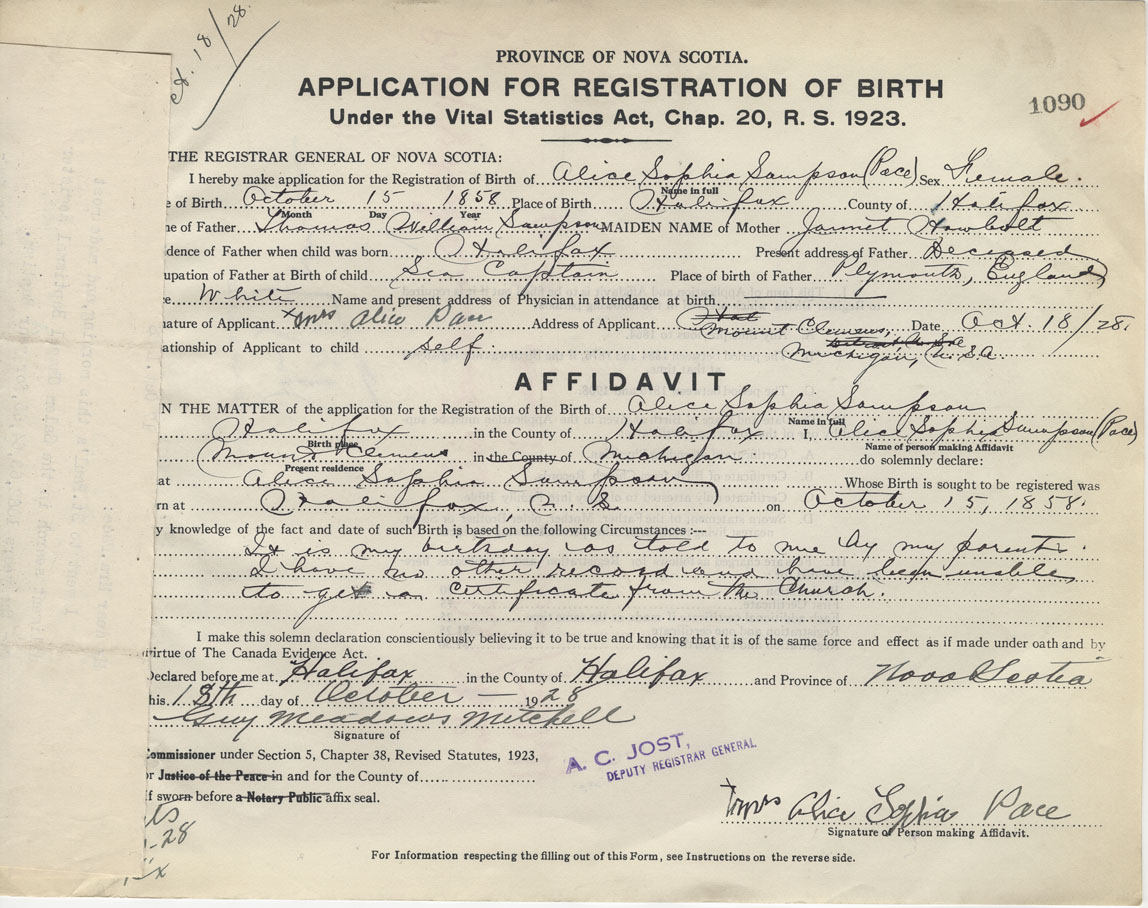 ct. 18/28.
PROVINCE OF NOVA SCOTIA.
APPLICATION FOR REGISTRATION OF BIRTH
Under the Vital Statistics Act, Chap. 20, R. S. 1923.
1090
THE REGISTRAR GENERAL OF NOVA SCOTIA:
I hereby make application for the Registration of Birth of Alice Sophia Sampson (Pace) Sex Female.
Name in full
e of Birth October 15 1858 Place of Birth Halifax County of Halifax
Month Day Year
ne of Father Thomas William Sampson MAIDEN NAME of Mother Jannet Howbolt
idence of Father when child was born Halifax Present address of Father Deceased
upation of Father at Birth of child Sea Captain Place of birth of Father Plymouth, England
e White Name and present address of Physician in attendance at birth
nature of Applicant x Mrs Alice Pace Address of Applicant Mount Clemens, Date Oct. 18/28.
ationship of Applicant to child self. Michigan, U.S.A.
AFFIDAVIT
IN THE MATTER of the application for the Registration of the Birth of Alice Sophia Sampson
Name in full
Halifax in the County of Halifax I, Alice Sophia Sampson (Pace)
Birth place Name of person making Affidavit
Mount Clemens in the County of Michigan do solemnly declare:
Present residence
at Alice Sophia Sampson Whose Birth is sought to be registered was
rn at Halifax, N. S. on October 15, 1858.
y knowledge of the fact and date of such Birth is based on the following Circumstances :---
It is my birthday as told to me by my parents.
I have no other record and have been unable
to get a certificate from the Church.
I make this solemn declaration conscientiously believing it to be true and knowing that it is of the same force and effect as if made under oath and by
virtue of The Canada Evidence Act.
Declared before me at Halifax in the County of Halifax and Province of Nova Scotia
his 18th day of October 1928
Guy Meadows Mitchell
Signature of
Commissioner under Section 5, Chapter 38, Revised Statutes, 1923,
or Justice of the Peace in and for the County of
If sworn before a Notary Public affix seal.
A. C. JOST,
DEPUTY REGISTRAR GENERAL
-28
Mrs Alice Sophia Pace
Signature of Person making Affidavit.
For Information respecting the filling out of this Form, see Instructions on the reverse side.